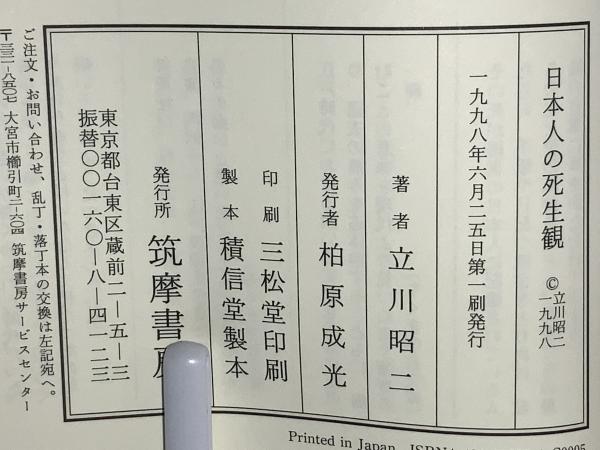 日本人の死生観 © 立川昭二 一九九八
一九九八年六月二五日第一刷発行
著者 立川昭二
発行者 柏原成光
印刷 三松堂印刷
製本 積信堂製本
発行所 筑摩書房
東京都台東区蔵前二―五―三
振替〇〇一六〇―八―四一二三
ご注文・お問い合わせ、乱丁・落丁本の交換は左記宛へ。
〒三三一―八五〇七 大宮市櫛引町二―六〇四 筑摩書房サービスセンター
Printed in Japan